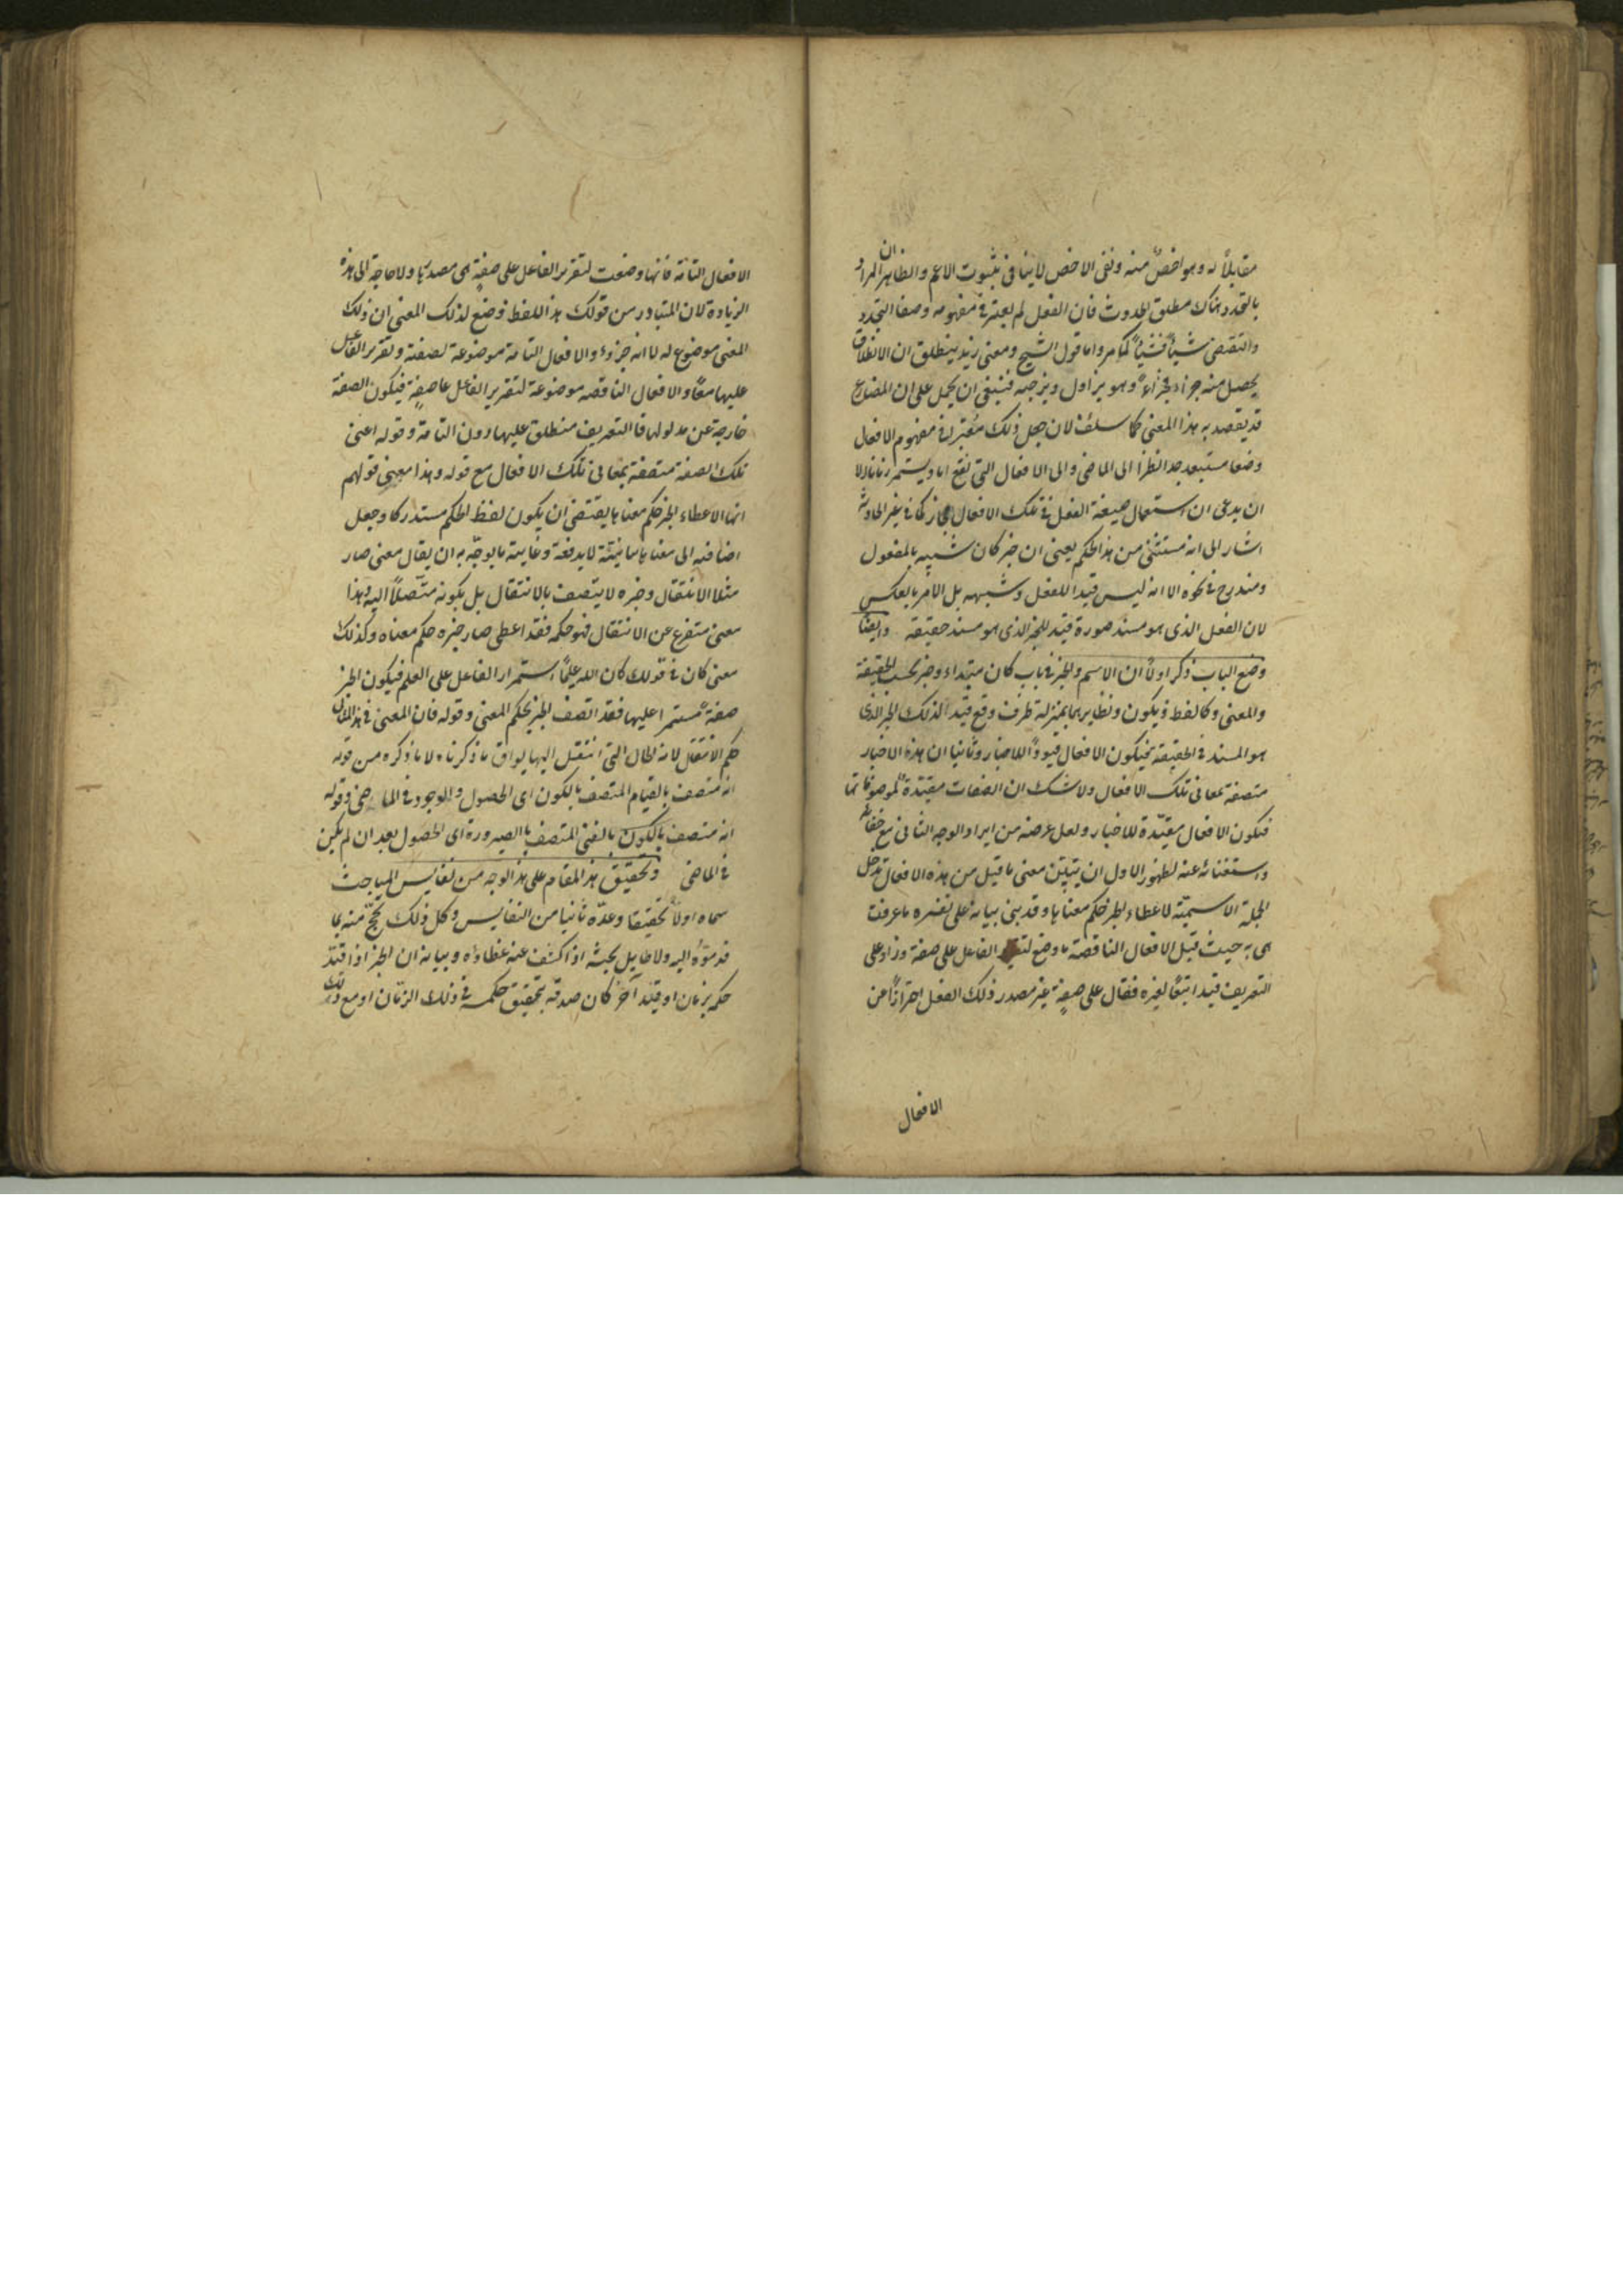 مقابلاً له وهو اخصّ منه ونفى الاخص لا ينافى ثبوت الاعم والظاهر ان المراد
بالتجدد هناك مطلق الحدوث فان الفعل لم يعتبر فى مفهومه وضعا التجدد
والتقضى شيأ فشيأ كما مر واما قول الشيخ ومعنى زيد ينطلق ان الانطلاق
يحصل منه جزءا فجزءا وهو يزاوله ويزجيه فينبغى ان يحمل على ان المضارع
قد يقصد به هذا المعنى كما سلف لان جعل ذلك معتبرا فى مفهوم الافعال
وضعا مستبعد جدا نظرا الى الماضى والى الافعال التى تقع انا ويستمر زمانا الا
ان يدعى ان استعمال صيغة الفعل فى تلك الافعال مجاز كما فى غير الحادثة
اشار الى انه مستثنى من هذا الحكم يعنى ان خبر كان شبيه بالمفعول
ومندرج فى نحوه الا انه ليس قيدا للفعل وشبهه بل الامر بالعكس
لان الفعل الذى هو مسند صورة قيد للخبر الذى هو مسند حقيقة وايضا
وضع الباب ذكر اولا ان الاسم والخبر فى باب كان مبتداء وخبر بحسب الحقيقة
والمعنى وكالفظ ويكون ونظايرهما بمنزلة ظرف وقع قيدا لذلك الخبر الذى
هو المسند فى الحقيقة فيكون الافعال قيودا للاخبار وثانيا ان هذه الاخبار
متصفة بمعانى تلك الافعال ولا شك ان الصفات مقيّدة لموصوفاتها
فيكون الافعال مقيّدة للاخبار ولعل غرضه من ايراد الوجه الثانى مع خفائه
واستغنائه عنه لظهور الاول ان يتبيّن معنى ما قيل من هذه الافعال تدخل
الجملة الاسميّة لاعطاء الخبر حكم معناها وقد بنى بيانه على تفسيره ما عرفت
هى به حيث قيل الافعال الناقصة ما وضع الفاعل على صفة وزاد على
التعريف قيدا تبعًا لغيره فقال على صفة غير مصدر ذلك الفعل احترازًا عن
الافعال
الافعال التامّة فانها وضعت لتقرير الفاعل على صفة هى مصدرها ولا حاجة الى هذه
الزيادة لان المتبادر من قولك هذا اللفظ وضع لذلك المعنى ان ذلك
المعنى موضوع له لا انه جزؤه والافعال التامة موضوعة لصفة وتقرير الفاعل
عليها معًا والافعال الناقصه موضوعة لتقرير الفاعل على صفة فيكون الصفة
خارجة عن مدلولها فالتعريف منطلق عليها دون التامة وقوله اعنى
تلك الصفة متصفة بمعانى تلك الافعال مع قوله وهذا معنى قولهم
انها لاعطاء الخبر حكم معناها يقتضى ان يكون لفظ الحكم مستدركا وجعل
اضافته الى معناها بيانيّة لا يدفعه وغاية ما يوجّه به ان يقال معنى صار
مثلا الانتقال وخبره لا يتصف بالانتقال بل بكونه منتقلا اليه وهذا
معنى متفرع عن الانتقال فهو حكمه فقد اعطى صار خبره حكم معناه وكذلك
معنى كان فى قولك كان الله عليمًا استمرار الفاعل على العلم فيكون الخبر
صفة مستمرا عليها فقد اتصف الخبر بحكم المعنى وقوله فان المعنى فى هذا المثال
حكم الانتقال لانه الحال التى انتقل اليها يوافق ما ذكرناه لا ما ذكره من قوله
انه متصف بالقيام المتصف بالكون اى الحصول والوجود فى الماضى وقوله
انه متصف بالكون بالغنى المتصف بالصيرورة اى الحصول بعد ان لم يكن
فى الماضى وتحقيق هذا المقام على هذا الوجه من نفايس المباحث
سماه اولا تحقيقا وعدّه ثانيا من النفايس وكل ذلك تبجّح منه بما
قد موّه اليه ولا طايل تحته اذا كشف عنه غطاؤه وبيانه ان الخبر اذا قيّد
حكمه بزمان او قيد آخر كان صدقه بتحقيق حكمه فى ذلك الزمان او مع ذلك